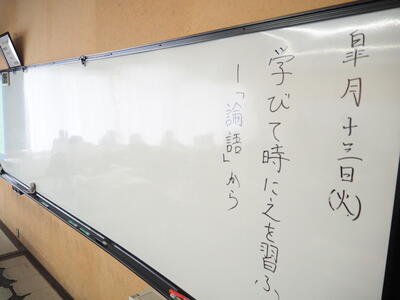 皐月十三日(火)
学びて時に之を習ふ
ー「論語」から